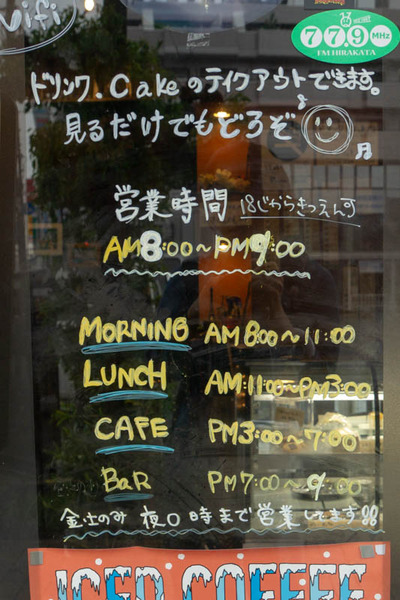 Wifi
77.9 MHz
FM HIRAKATA
ドリンク.Cakeのテイクアウトできます。
見るだけでもどうぞ♪
営業時間 18じからきつえん可
AM8:00～PM9:00
MORNING AM8:00～11:00
LUNCH AM:11:00～PM3:00
CAFE PM3:00～7:00
BaR PM7:00～9:00
金・土のみ 夜0時まで営業してます!!
ICED COFFEE